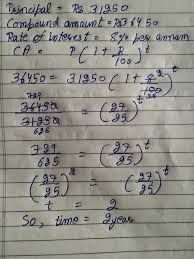 Principal = Rs 31250
Compound amount = Rs 36450
Rate of interest = 8% per annum
CA = P(1 + R/100)^t
36450 = 31250 (1 + 8/100)^t
729 2
36450/31250 = (27/25)^t
625 25
729/625 = (27/25)^t
(27/25)^2 = (27/25)^t
t = 2
So, time = 2 years